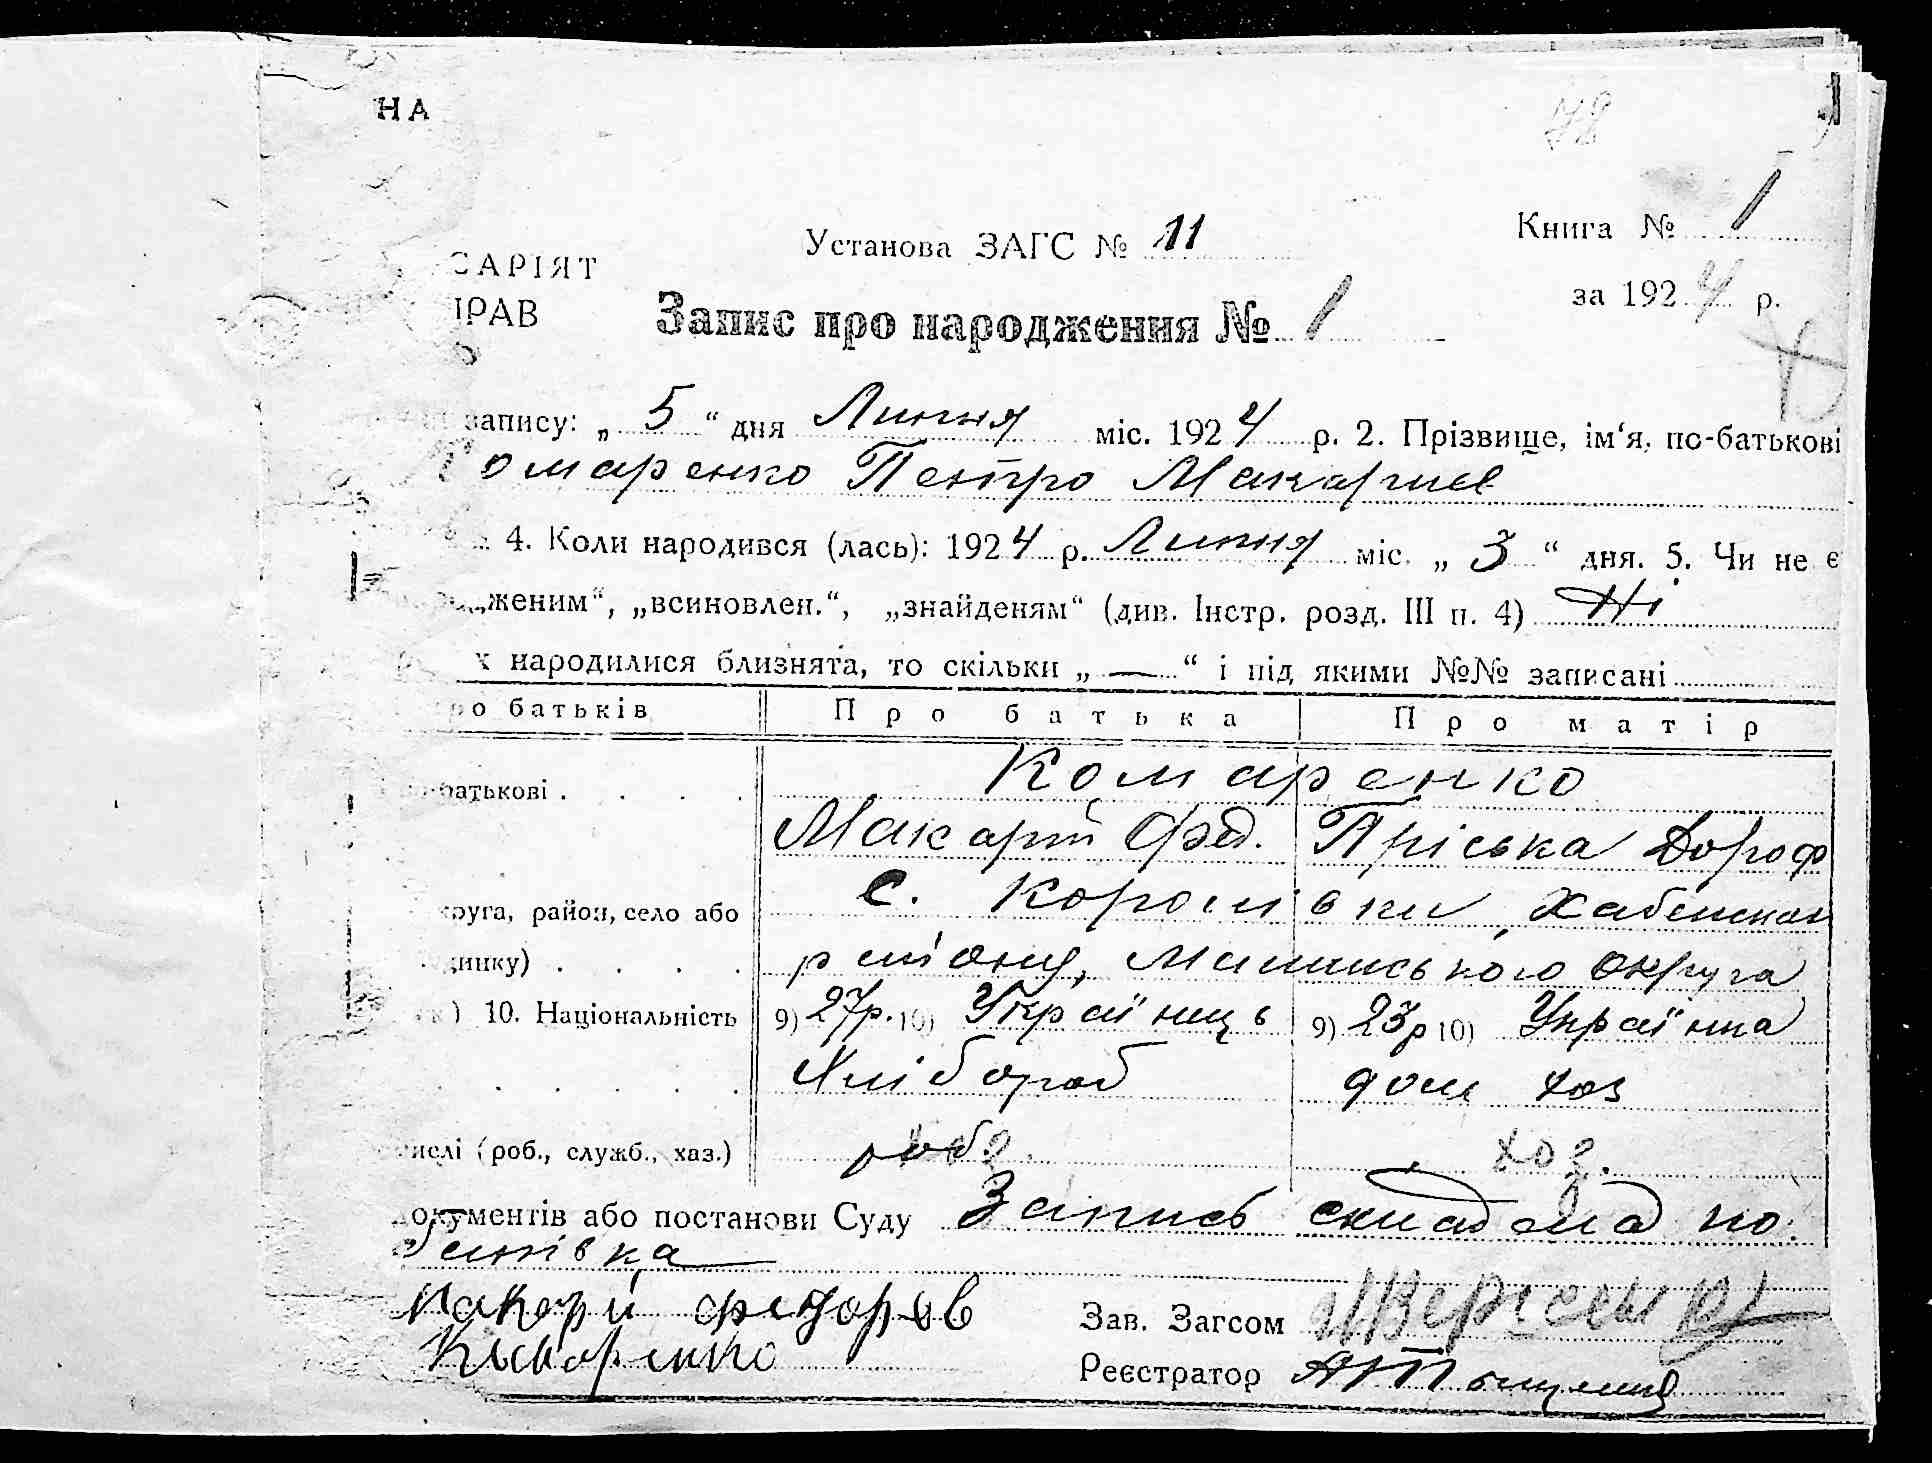 НА
78
Установа ЗАГС № 11
Книга № 1
САРІЯТ
ПРАВ
за 1924 р.
Запис про народження № 1
запису: „ 5 “ дня Липня міс. 1924 р. 2. Прізвище, ім‘я, по-батькові
Комаренко Петро Макариев
4. Коли народився (лась): 1924 р. Липня міс. „ 3 “ дня. 5. Чи не є
женим“, „всиновлен.“, „знайденям“ (див. Інстр. розд. III п. 4) Ні
х народилися близнята, то скільки „ — “ і під якими №№ записані
ро батьків Про батька Про матір
батькові . . . . Комаренко
Макарій Фед. Пріська Дороф
круга, район, село або с. Королівки Хабенськ
динку) . . . . району, округа
) 10. Національність 9) 27р. 10) Українець 9) 23р 10) Українка
Хлібороб дом хоз
числі (роб., служб., хаз.) хоз.
документів або постанови Суду Запись складена по
батівка
Макарій Федоров
Комаренко
Зав. Загсом
Реєстратор